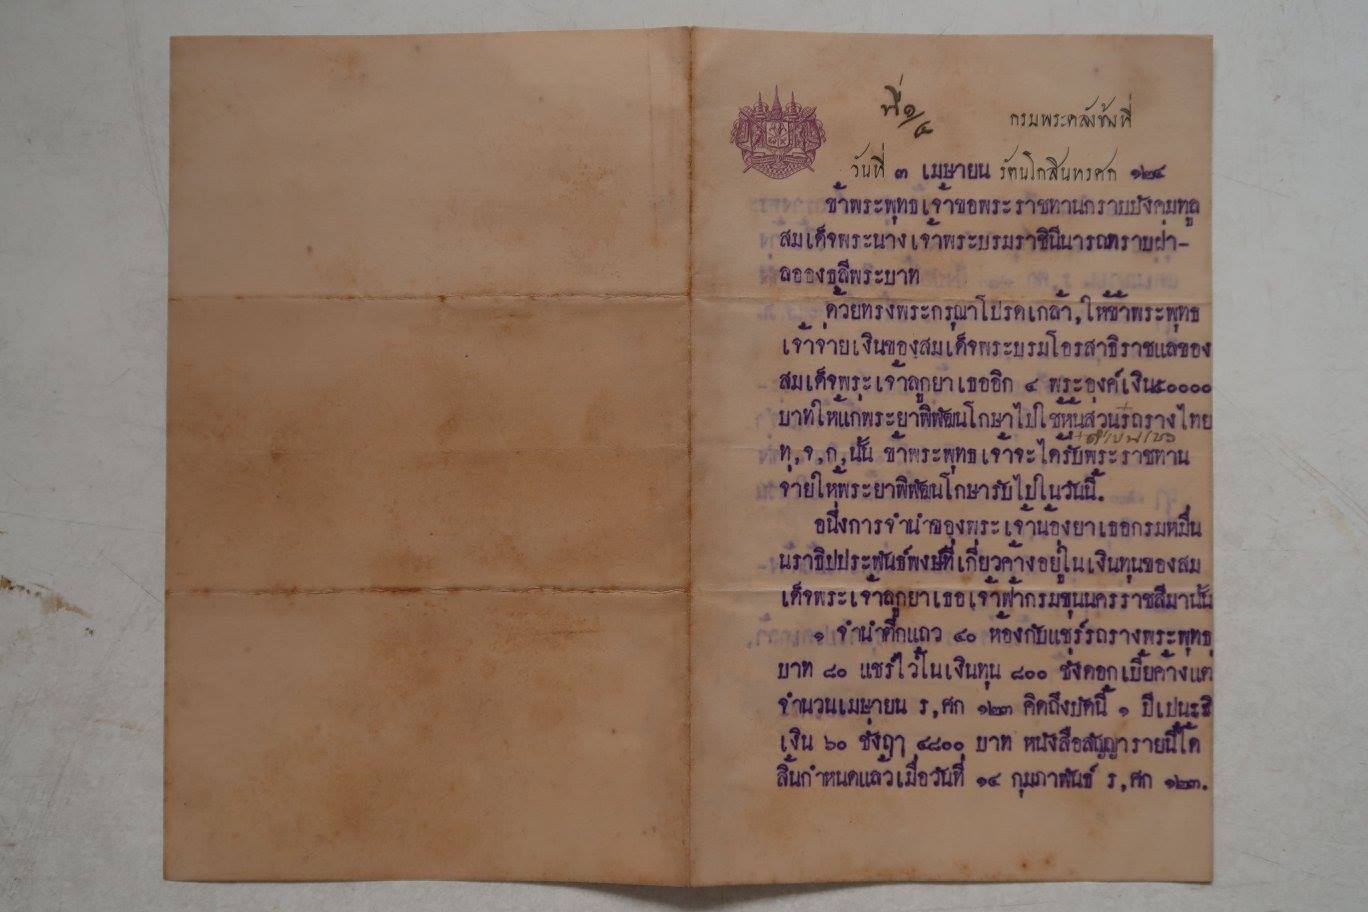 ที่ ๑/๔
กรมพระคลังข้างที่
วันที่ ๓ เมษายน รัตนโกสินทรศก ๑๒๔
ข้าพระพุทธเจ้าขอพระราชทานกราบบังคมทูล
สมเด็จพระนางเจ้าพระบรมราชินีนารถทราบฝ่า-
ลอองธุลีพระบาท
ด้วยทรงพระกรุณาโปรดเกล้า,ให้ข้าพระพุทธ
เจ้าจ่ายเงินของสมเด็จพระบรมโอรสาธิราชแลของ
สมเด็จพระเจ้าลูกยาเธออิก ๔ พระองค์เงิน๕๐๐๐๐
บาทให้แก่พระยาพิพัฒนโกษาไปใช้หุ้นส่วนรถรางไทย
ทุ,จ,ก,นั้น ข้าพระพุทธเจ้าจะได้รับพระราชทาน
จ่ายให้พระยาพิพัฒนโกษารับไปในวันนี้.
อนึ่งการจำนำของพระเจ้าน้องยาเธอกรมหมื่น
นราธิปประพันธ์พงษ์ที่เกี่ยวค้างอยู่ในเงินทุนของสม
เด็จพระเจ้าลูกยาเธอเจ้าฟ้ากรมขุนนครราชสีมานั้น
๑ จำนำตึกแถว ๔๐ ห้องกับแชร์รถรางพระพุทธ
บาท ๘๐ แชร์ไว้ในเงินทุน ๘๐๐ ชั่งดอกเบี้ยค้างแต่
จำนวนเมษายน ร,ศก ๑๒๓ คิดถึงบัดนี้ ๑ ปีเปน
เงิน ๖๐ ชั่งฤๅ ๔๘๐๐ บาท หนังสือสัญญารายนี้ได้
สิ้นกำหนดแล้วเมื่อวันที่ ๑๔ กุมภาพันธ์ ร,ศก ๑๒๓.